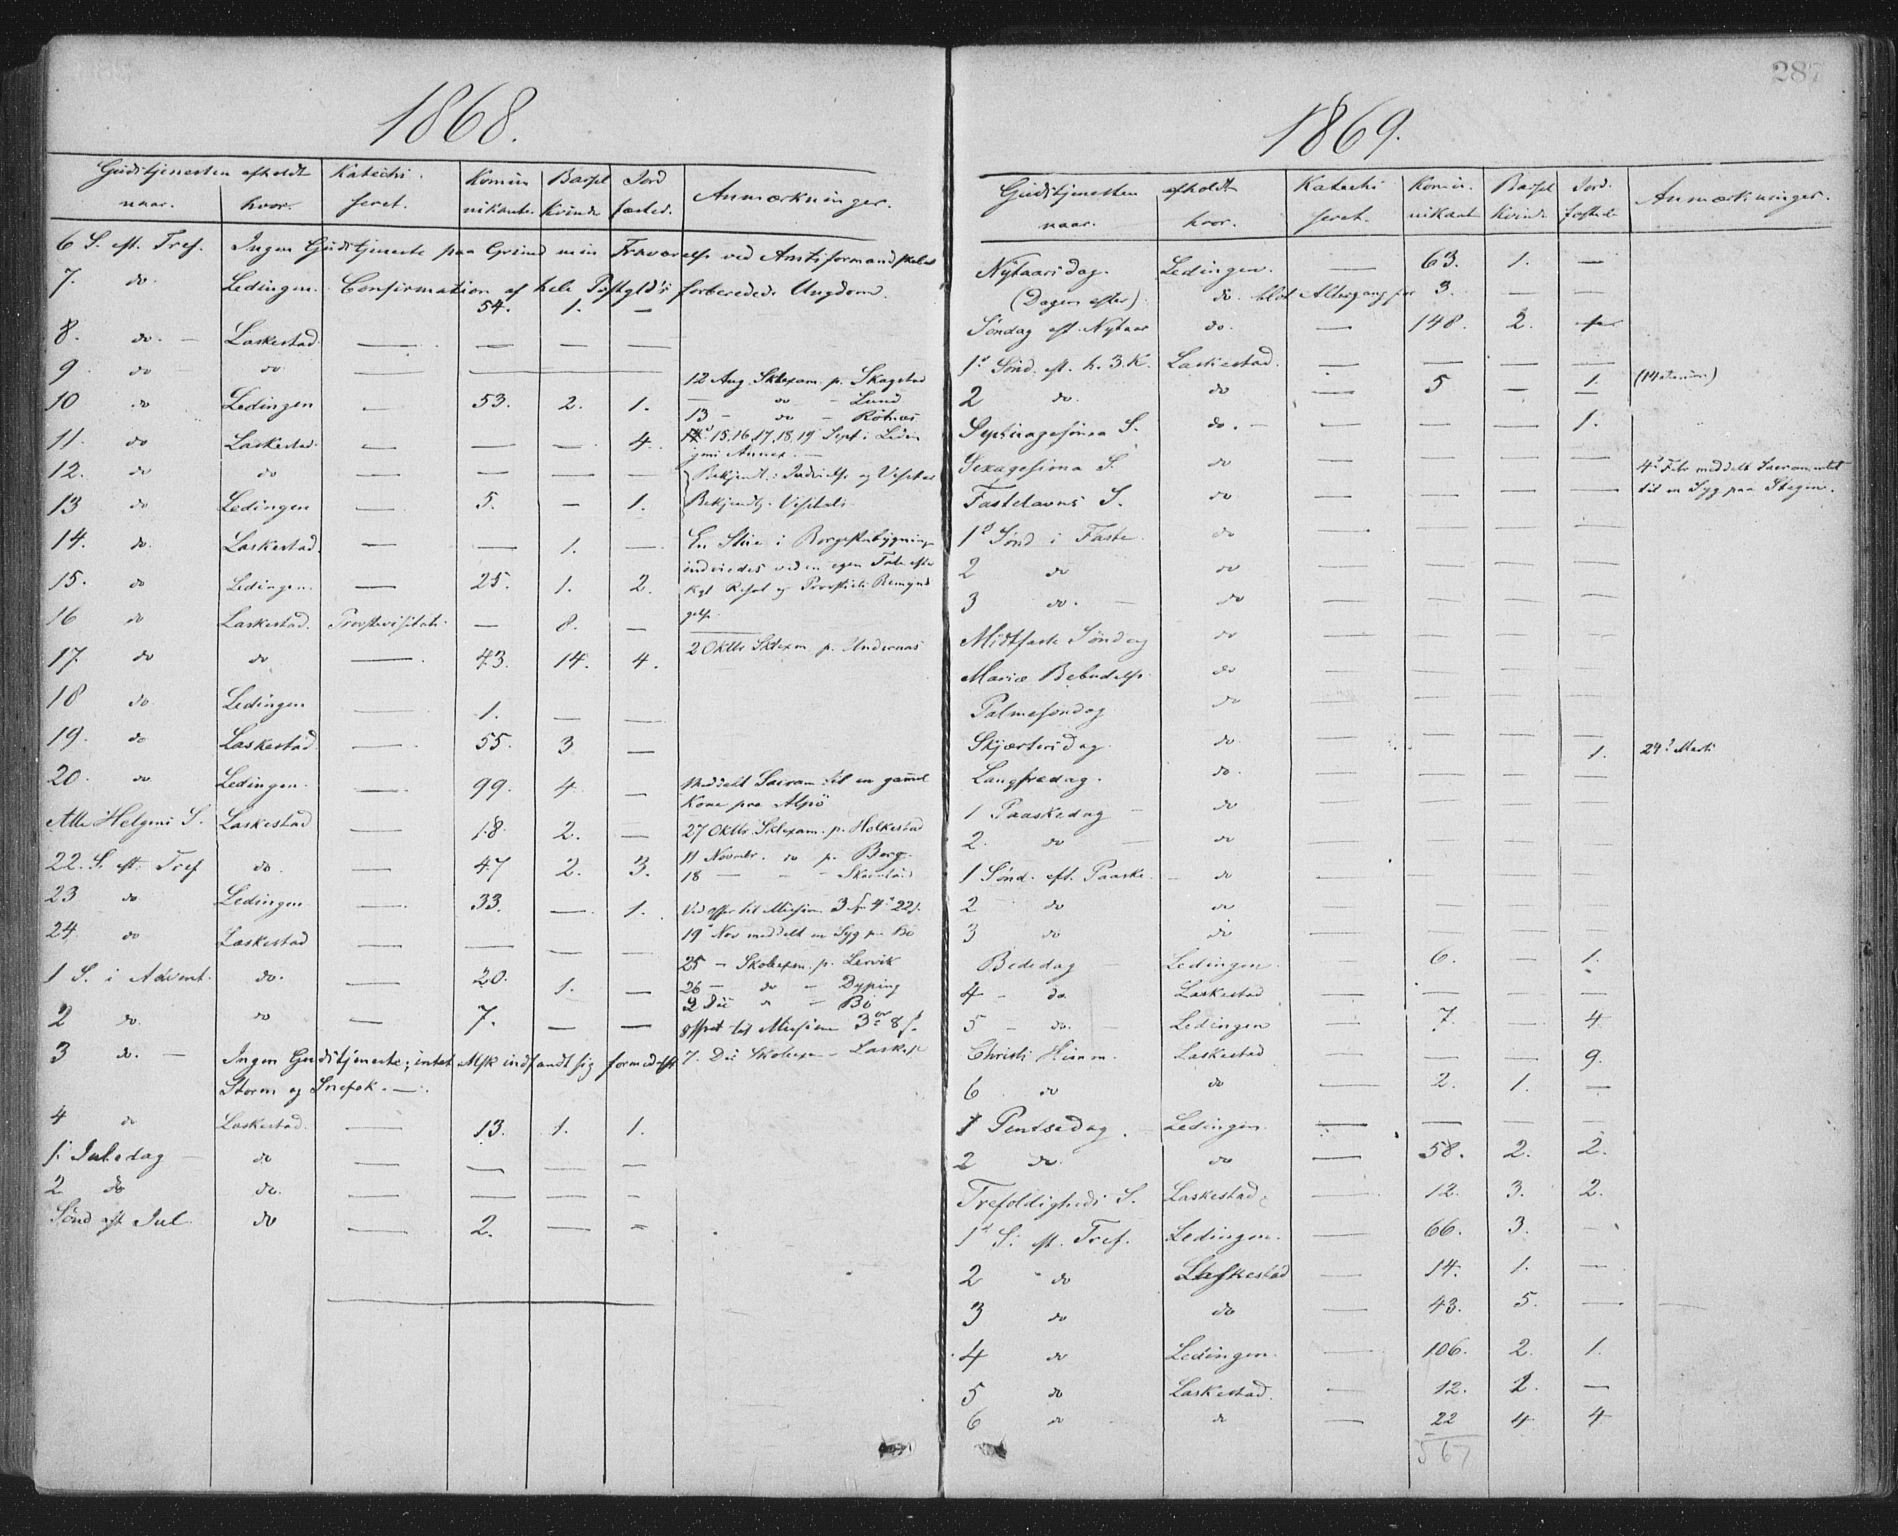 1868.
Gudstjenesten afholdt Katechi- Kommu Barsel Jord Anmærkninger.
naar. hvor. seret. nikanter Kvinder fæsted.
6 S. eft. Tref. Ingen Gudstjeneste paa Grund min Fraværelse ved
7. do. Ledingen. Confirmation af hele forberedede Ungdom.
54. 1. —
8. do. — Laskestad — — — —
9 do do — —
12 Aug. Sklexam. p. Skagstad
10 do Ledingen — 53. 2. 1. — do — Lund
13 — do —
11. do Laskestad — — — 4. 15, 16, 17, 18, 19 Sept i
Annex. —
12. do do — — — —
13 do Ledingen — 5. — 1.
14. do. Laskestad. — — 1. — En i
15. do Ledingen. — 25. 1. 2.
16 do Laskestad. Provstevisitats — 8. —
17. do do — 43. 14. 4. 2 Oktbr Sklexm p.
18 do Ledingen — 1. — —
19. do Laskestad — 55. 3 —
20. do Ledingen. — 99. 4. — Meddelt Sacram. til en gammel
Kone paa
Alle Helgens S. Laskestad — 18. 2. — 27 Oktbr. Sklexam. p. Holkestad
22. S. eft. Tref do. — 47 2. 3. 11 Novmbr. do p. Borg.
18 — — —
23 do Ledingen — 33. — 1. Ved offer til Mission 3
24. do Laskestad — — — — 19 Nov meddelt en Syg p. Bö
1 S. i Advent. do. — 20. 1. — 25 — Skolexm. p. Lervik
26 — do — Dyping
2 do. do — 7. — — 2 Dec " — Bö
offret til Mission 3
3 do. — Ingen Gudstjeneste; intet Msk indfandt sig formedelst 7. Dec Skolexa —
Storm og Snefok. —
4 do Laskestad. — 13. 1. 1.
1. Juledag — do — — — —
2 do do. — — — —
Sönd eft Jul. do — 2. — —
287
1869.
Gudstjenesten afholdt Katechi Kommu- Barsel Jord- Anmærkninger.
naar. hvor. seret. nikant Kvinde fæstede
Nytaarsdag. Ledingen. — 63. 1. —
(Dagen efter) do blot Altergang for 3. — —
Söndag eft. Nytaar do. — 148. 2.
1. Sönd. eft. h. 3. K. Laskestad. — — — —
2 do. do — 5 — 1.
Septuagesima S. do. — — — — 1.
Sexagesima S. do — — — — 4 Febr meddelt Sacramentet
Fastelavns S. do — — — — til en Syg paa Stegen.
1 Sönd i Faste do — — — —
2 do do — — — —
3 do. — do — — — —
Midtfaste Söndag do — — — —
Mariæ Bebudelse do — — — —
Palmesöndag do — — — —
Skjærtorsdag. do. — — — 1. 24 Marts
Langfredag. do. — — — —
1 Paaskedag — do — — — —
2. do — do — — — —
1 Sönd. eft. Paaske. — do — — — —
2 do do — — — —
3 do do — — — —
Bededag — Ledingen. — 6. — 1.
4 — do Laskestad — — — —
5 — do. — Ledingen — 7. — 4.
Christi Himm. Laskestad — — — 9.
6 do do — 2. 1. —
1 Pentsedag. — Ledingen. — — — —
2 do. do — 58. 2. 2.
Trefoldigheds S. Laskestad — 12. 3. 2.
1 S. eft. Tref. Ledingen. — 66. 3. —
2 do Laskestad — 14. 1. —
3 do do — 43. 5. —
4 do Ledingen. — 106. 2. 1.
5 do Laskestad. — 12. 2. —
6 do do — 22 4 4
567